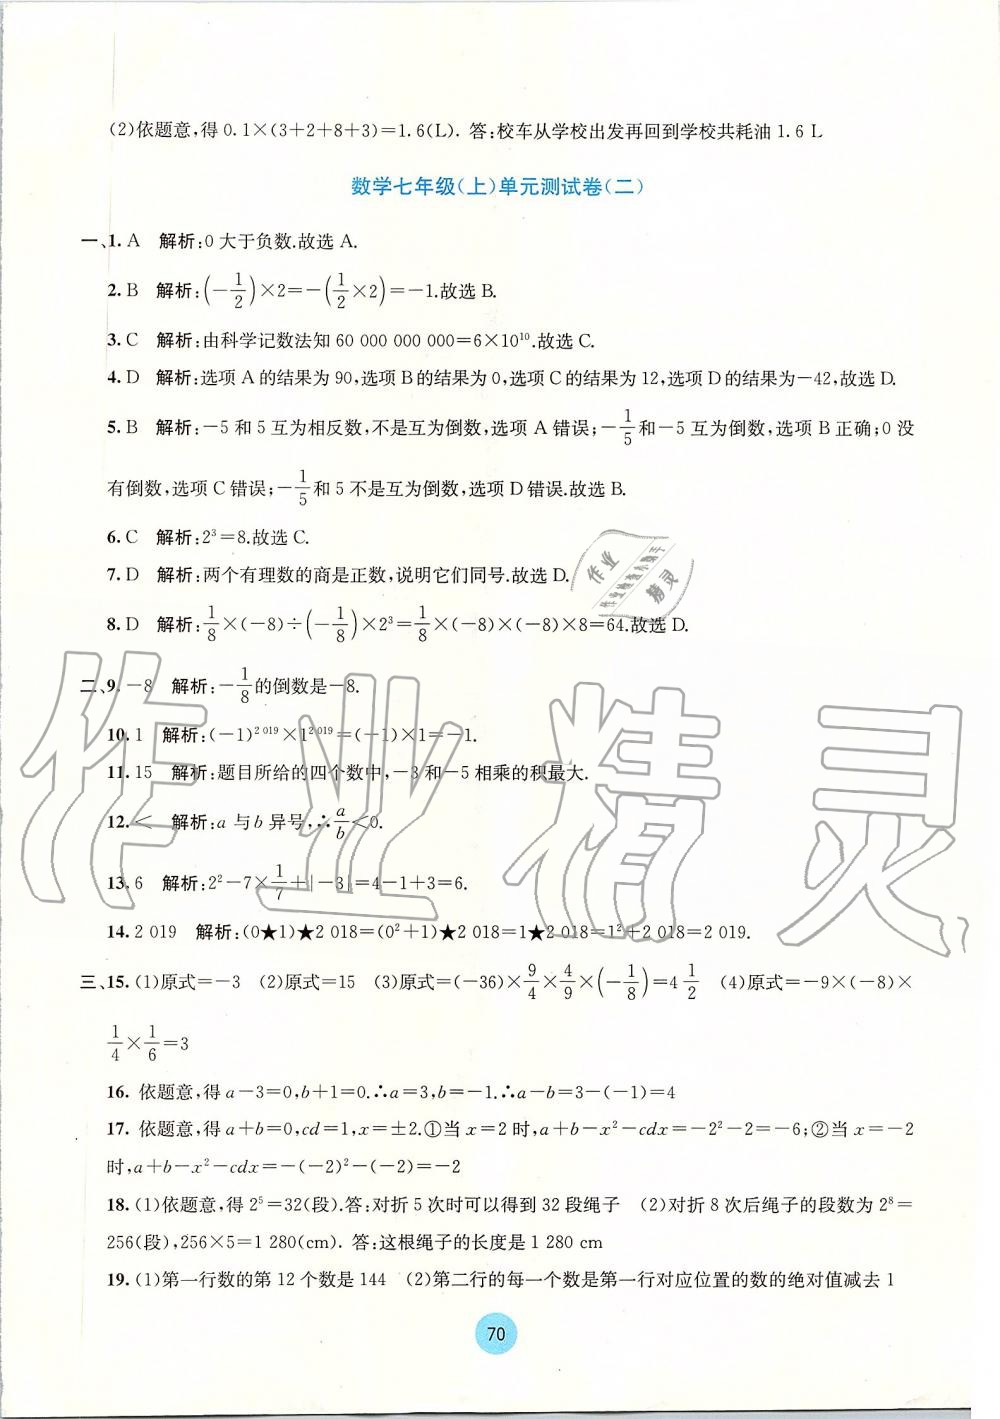 (2)依题意,得0.1×(3+2+8+3)=1.6(L). 答:校车从学校出发再回到学校共耗油1.6 L
数学七年级(上)单元测试卷(二)
一、1. A 解析:0大于负数.故选A.
2. B 解析:(-1/2)×2=-(1/2×2)=-1.故选B.
3. C 解析:由科学记数法知60 000 000 000=6×10¹⁰.故选C.
4. D 解析:选项A的结果为90,选项B的结果为0,选项C的结果为12,选项D的结果为-42,故选D.
5. B 解析:-5和5互为相反数,不是互为倒数,选项A错误;-1/5和-5互为倒数,选项B正确;0没
有倒数,选项C错误;-1/5和5不是互为倒数,选项D错误.故选B.
6. C 解析:2³=8.故选C.
7. D 解析:两个有理数的商是正数,说明它们同号.故选D.
8. D 解析:1/8×(-8)÷(-1/8)×2³=1/8×(-8)×(-8)×8=64.故选D.
二、9. -8 解析:-1/8的倒数是-8.
10. 1 解析:(-1)²⁰¹⁹×1²⁰¹⁹=(-1)×1=-1.
11. 15 解析:题目所给的四个数中,-3和-5相乘的积最大.
12. < 解析:a与b异号,∴a/b<0.
13. 6 解析:2²-7×1/7+|-3|=4-1+3=6.
14. 2 019 解析:(0★1)★2 018=(0²+1)★2 018=1★2 018=1²+2 018=2 019.
三、15. (1)原式=-3 (2)原式=15 (3)原式=(-36)×9/4×4/9×(-1/8)=4 1/2 (4)原式=-9×(-8)×
1/4×1/6=3
16. 依题意,得a-3=0,b+1=0.∴a=3,b=-1.∴a-b=3-(-1)=4
17. 依题意,得a+b=0,cd=1,x=±2.①当x=2时,a+b-x²-cdx=-2²-2=-6;②当x=-2
时,a+b-x²-cdx=-(-2)²-(-2)=-2
18. (1)依题意,得2⁵=32(段).答:对折5次时可以得到32段绳子 (2)对折8次后绳子的段数为2⁸=
256(段),256×5=1 280(cm). 答:这根绳子的长度是1 280 cm
19. (1)第一行数的第12个数是144 (2)第二行的每一个数是第一行对应位置的数的绝对值减去1
70
作业精灵
作业
精灵